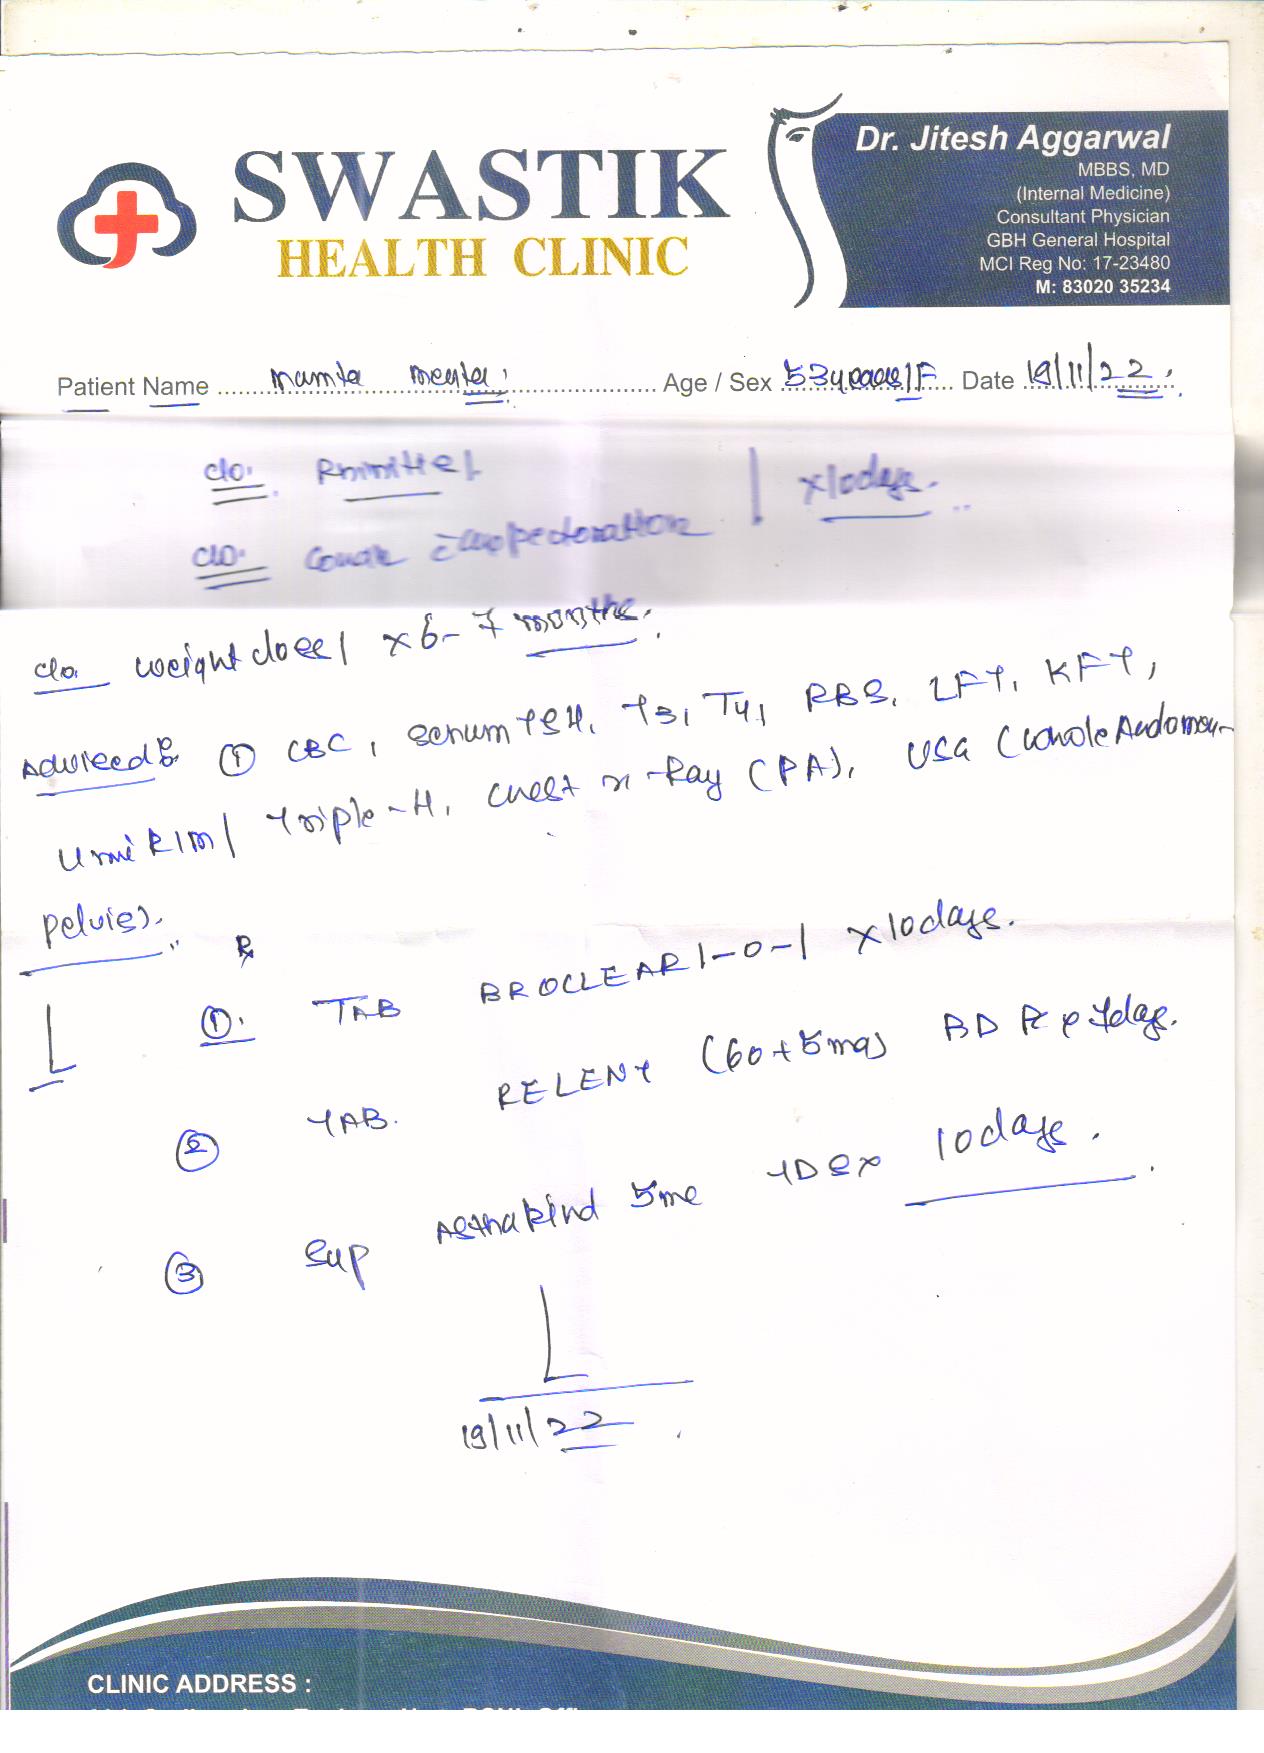 SWASTIK
HEALTH CLINIC
Dr. Jitesh Aggarwal
MBBS, MD
(Internal Medicine)
Consultant Physician
GBH General Hospital
MCI Reg No: 17-23480
M: 83020 35234
Patient Name mamta Age / Sex 53 years/F Date 19/11/22
c/o. Rhinitis
c/o. cough c̄ expectoration x10days.
c/o weight loss x 6-7 months.
Advised ① CBC, serum TSH, T3, T4, RBS, LFT, KFT,
urine R/M Triple-H, chest x-Ray (PA), USG (whole Abdomen
pelvis).
Rx
①. TAB BROCLEAR 1-0-1 x10days.
② TAB. RELENT (60+5mg) BD x 7days.
③ Syp Asthakind 5ml TDS x 10days.
19/11/22
CLINIC ADDRESS :